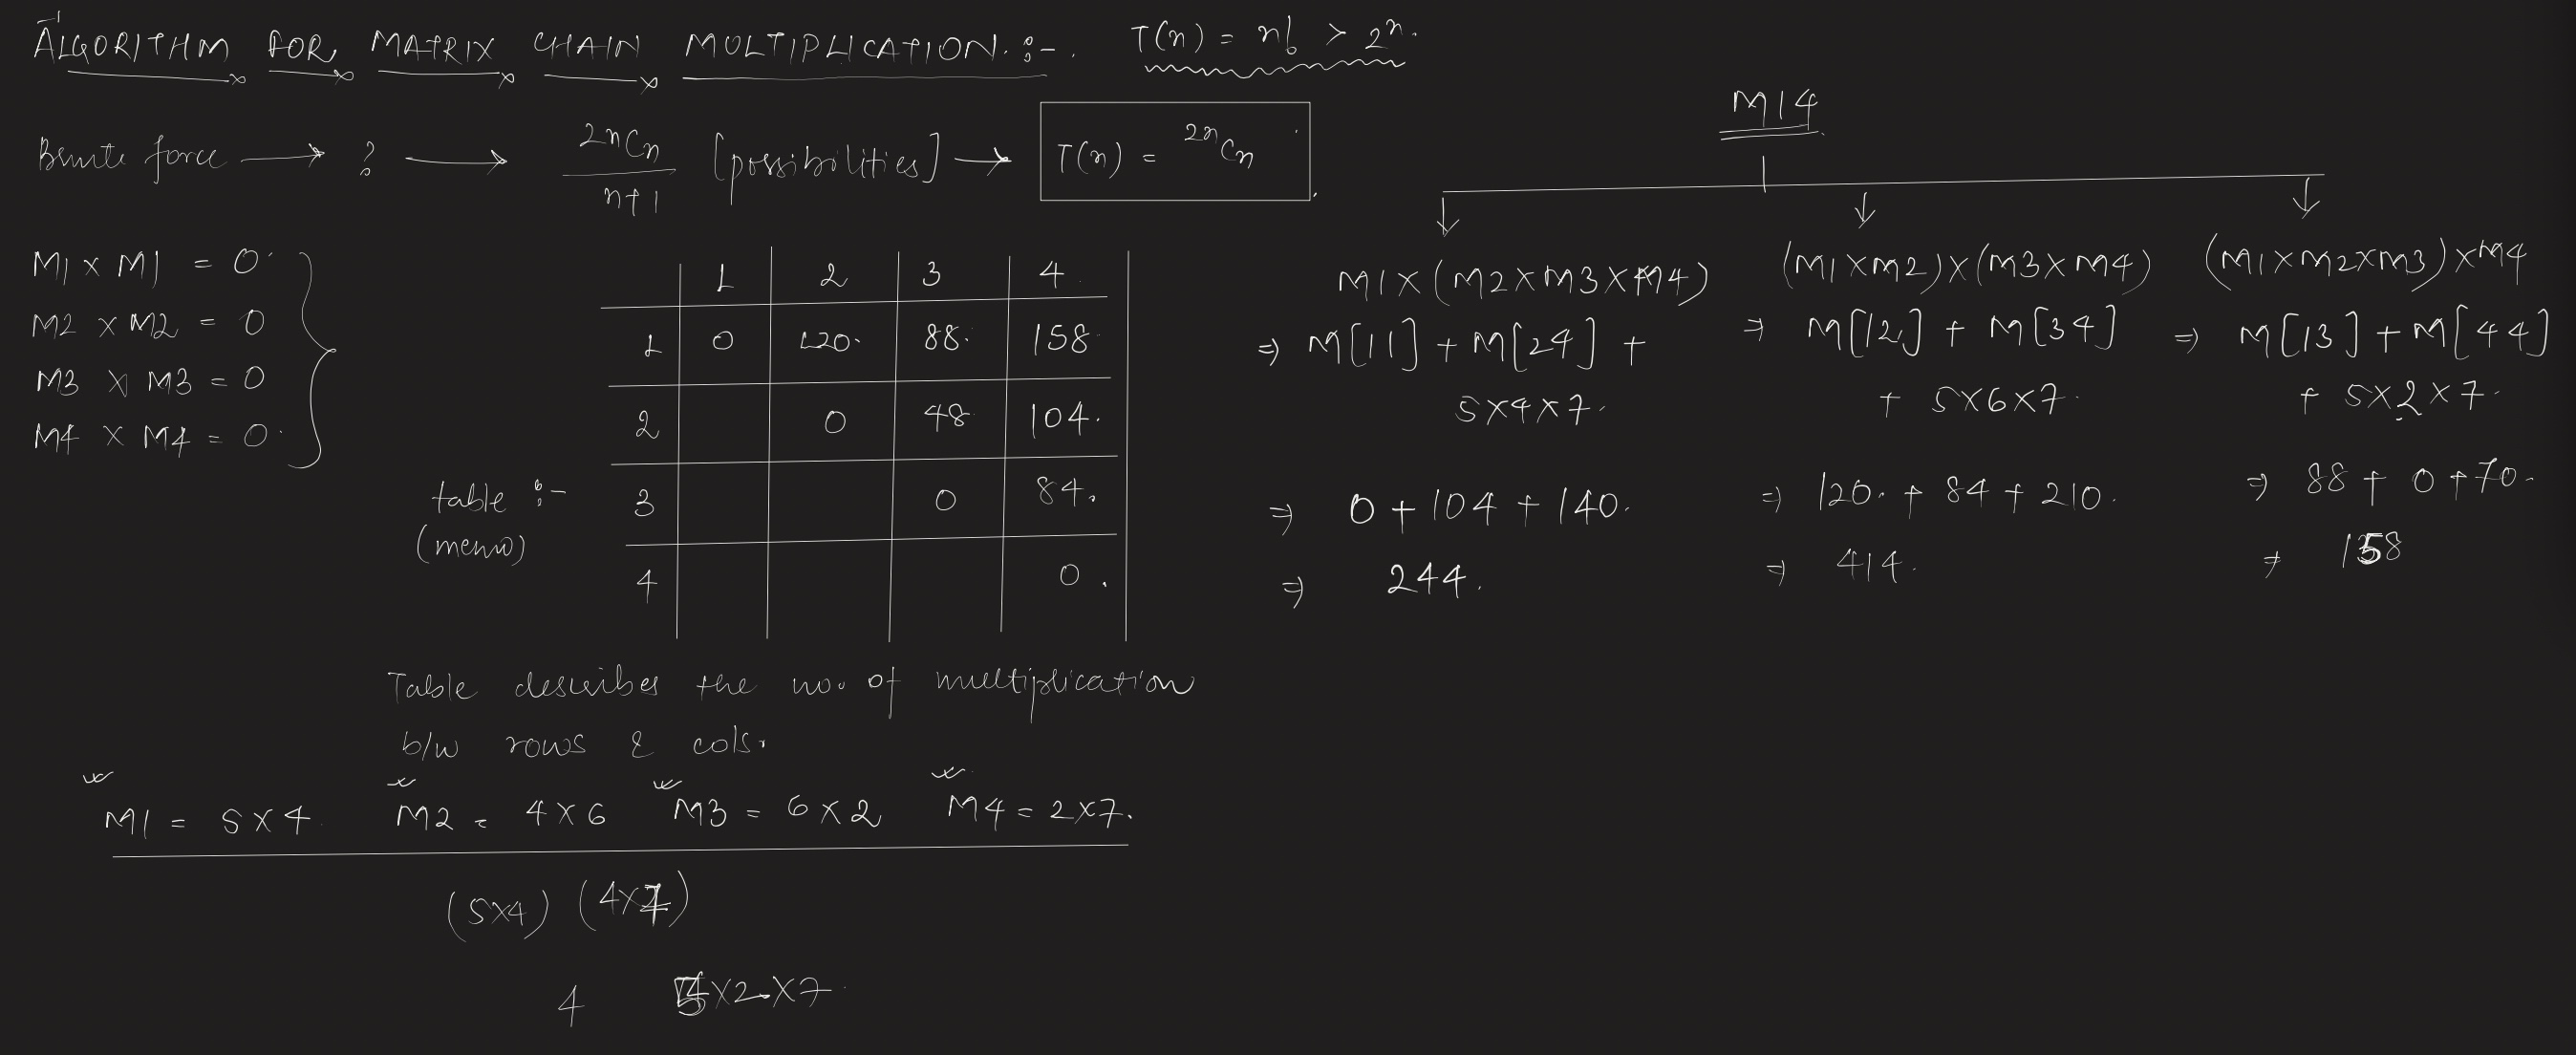 ALGORITHM FOR MATRIX CHAIN MULTIPLICATION. :-. T(n) = n! > 2^n.
Brute force → ? → 2nCn / n+1 [possibilities] → T(n) = 2nCn
M1 x M1 = 0
M2 x M2 = 0
M3 x M3 = 0
M4 x M4 = 0.
table :-
(memo)
1 2 3 4
1 0 120. 88. 158
2 0 48 104.
3 0 84.
4 0.
Table describes the no. of multiplication
b/w rows & cols.
M1 = 5x4 M2 = 4x6 M3 = 6x2 M4 = 2x7.
(5x4) (4x7)
4 5x2x7
M14
M1x(M2xM3xM4)
⇒ M[11] + M[24] +
5x4x7.
⇒ 0 + 104 + 140.
⇒ 244.
(M1xM2)x(M3xM4)
⇒ M[12] + M[34]
+ 5x6x7.
⇒ 120. + 84 + 210.
⇒ 414.
(M1xM2xM3)xM4
⇒ M[13] + M[44]
+ 5x2x7.
⇒ 88 + 0 + 70.
⇒ 158